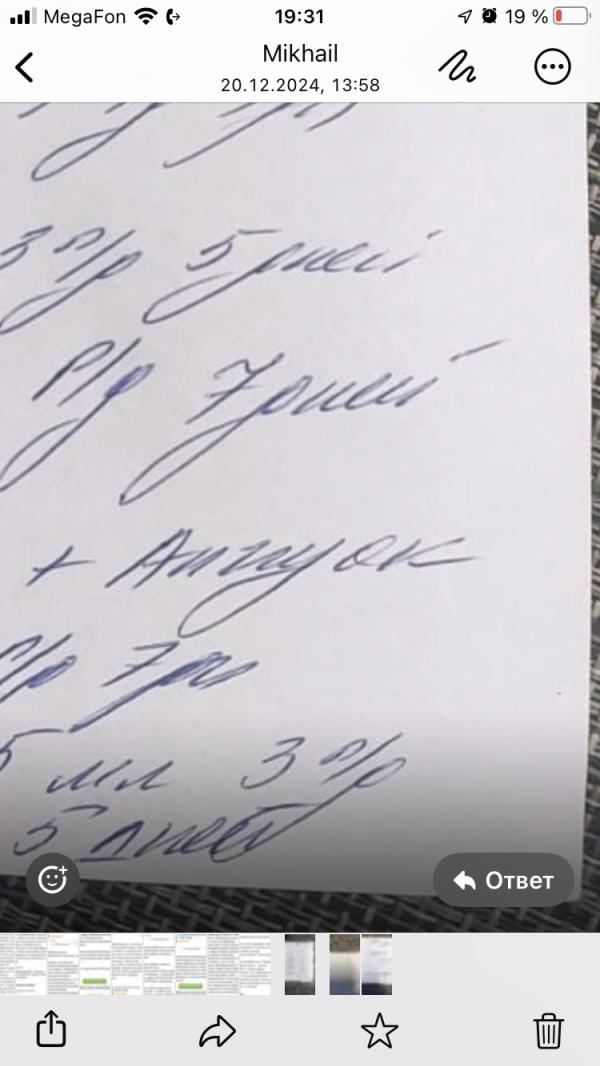 MegaFon 19:31 19 %
Mikhail
20.12.2024, 13:58
3 р/д 5 дней
р/д 7 дней
+
р/д 7 дн
5 мл 3 р/д
5 дней
Ответ